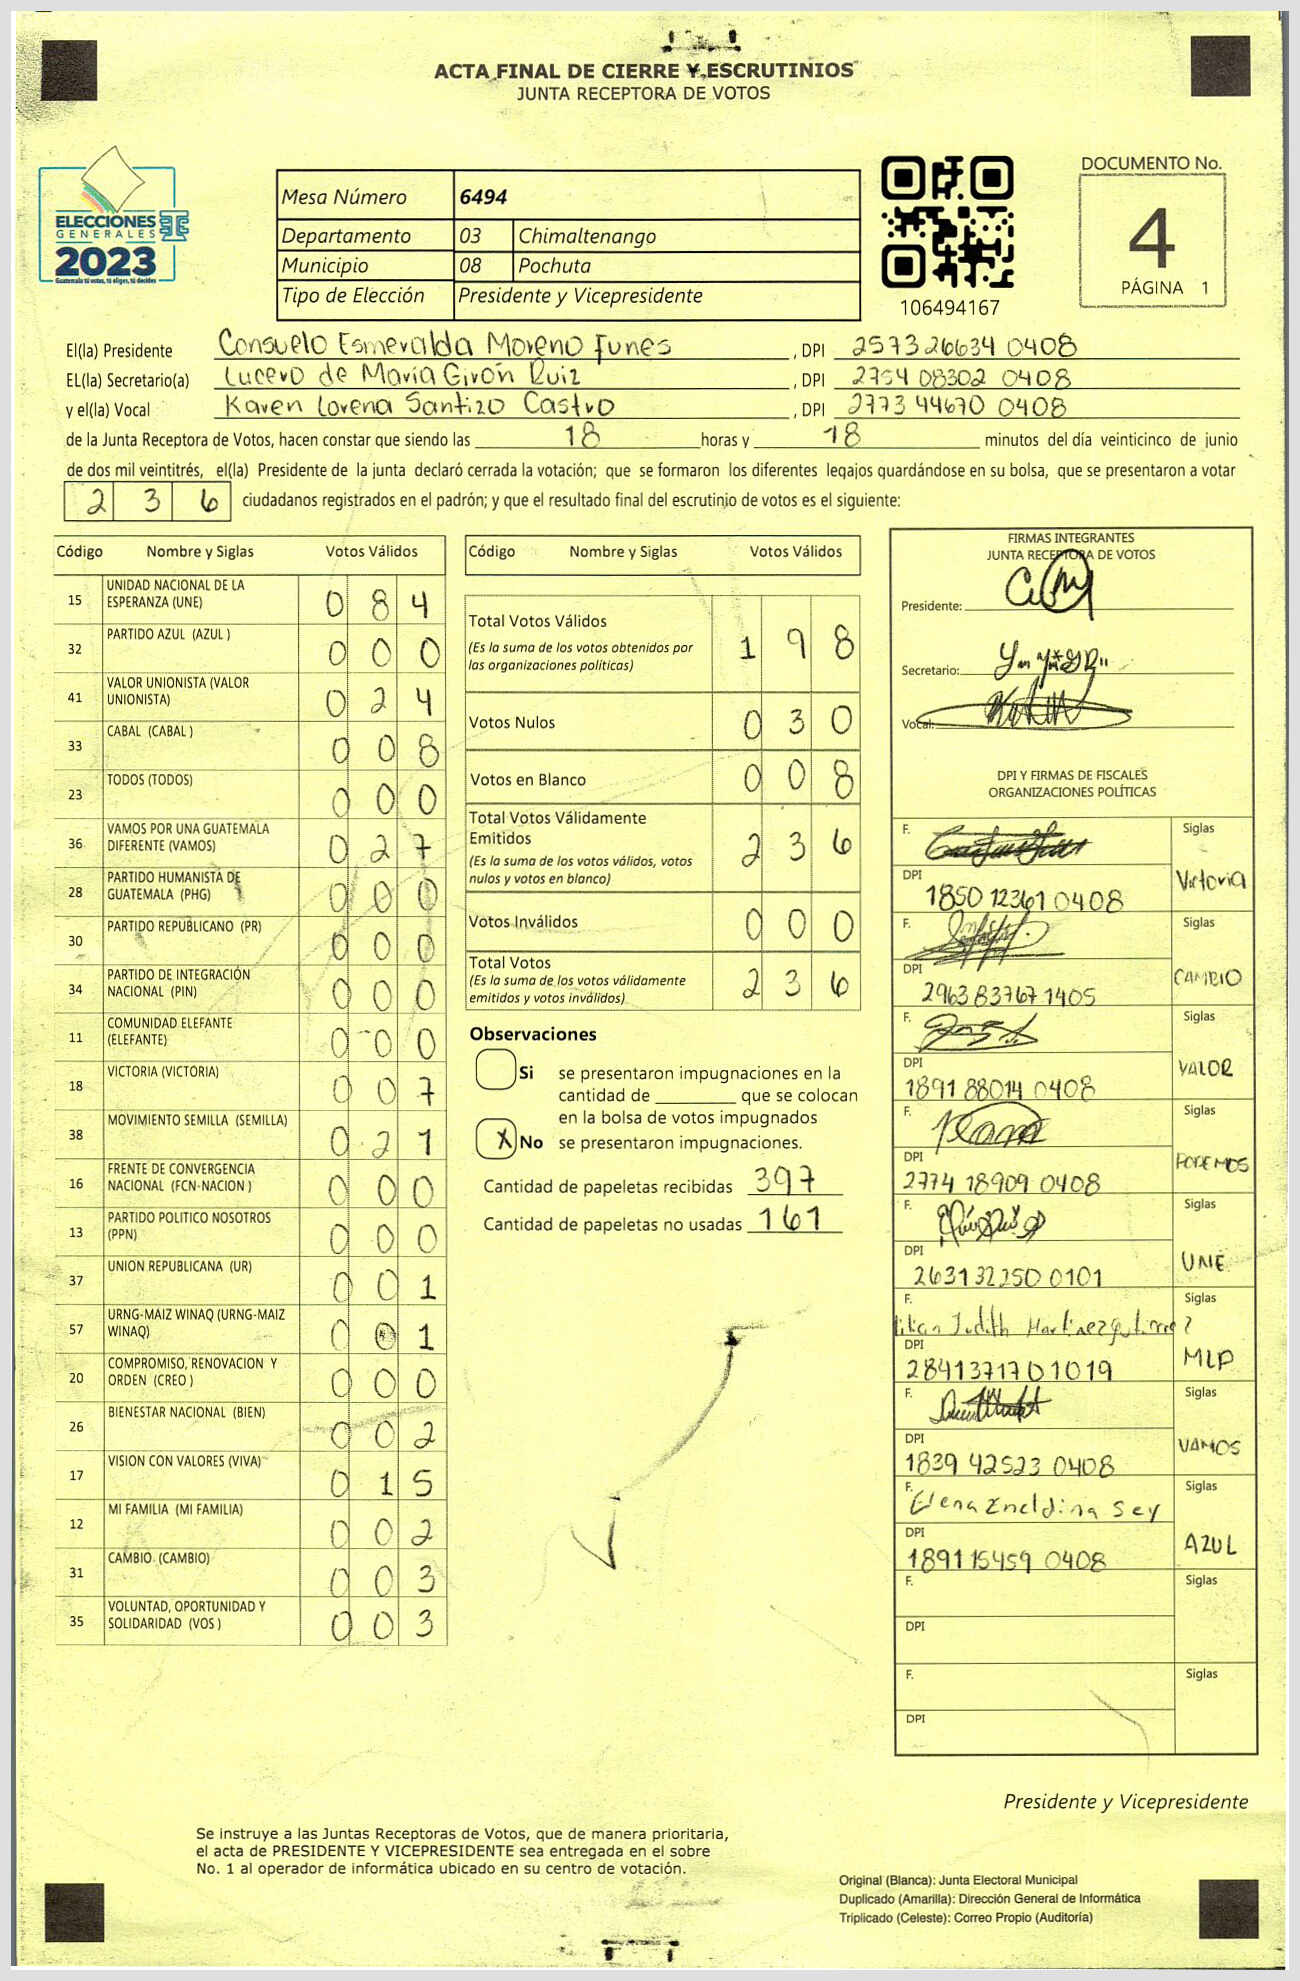 ACTA FINAL DE CIERRE Y ESCRUTINIOS
JUNTA RECEPTORA DE VOTOS
ELECCIONES
GENERALES
2023
Guatemala tú votas, tú eliges, tú decides
Mesa Número 6494
Departamento 03 Chimaltenango
Municipio 08 Pochuta
Tipo de Elección Presidente y Vicepresidente
106494167
DOCUMENTO No.
4
PÁGINA 1
El(la) Presidente Consuelo Esmeralda Moreno Funes, DPI 2573 26634 0408
EL(la) Secretario(a) Lucero de María Girón Ruiz, DPI 2754 08302 0408
y el(la) Vocal Karen Lorena Santizo Castro, DPI 2773 44670 0408
de la Junta Receptora de Votos, hacen constar que siendo las 18 horas y 18 minutos del día veinticinco de junio
de dos mil veintitrés, el(la) Presidente de la junta declaró cerrada la votación; que se formaron los diferentes legajos quardándose en su bolsa, que se presentaron a votar
2 3 6 ciudadanos registrados en el padrón; y que el resultado final del escrutinio de votos es el siguiente:
Código Nombre y Siglas Votos Válidos
15 UNIDAD NACIONAL DE LA ESPERANZA (UNE) 0 8 4
32 PARTIDO AZUL (AZUL ) 0 0 0
41 VALOR UNIONISTA (VALOR UNIONISTA) 0 2 4
33 CABAL (CABAL ) 0 0 8
23 TODOS (TODOS) 0 0 0
36 VAMOS POR UNA GUATEMALA DIFERENTE (VAMOS) 0 2 7
28 PARTIDO HUMANISTA DE GUATEMALA (PHG) 0 0 0
30 PARTIDO REPUBLICANO (PR) 0 0 0
34 PARTIDO DE INTEGRACIÓN NACIONAL (PIN) 0 0 0
11 COMUNIDAD ELEFANTE (ELEFANTE) 0 0 0
18 VICTORIA (VICTORIA) 0 0 7
38 MOVIMIENTO SEMILLA (SEMILLA) 0 2 1
16 FRENTE DE CONVERGENCIA NACIONAL (FCN-NACION ) 0 0 0
13 PARTIDO POLITICO NOSOTROS (PPN) 0 0 0
37 UNION REPUBLICANA (UR) 0 0 1
57 URNG-MAIZ WINAQ (URNG-MAIZ WINAQ) 0 0 1
20 COMPROMISO, RENOVACION Y ORDEN (CREO ) 0 0 0
26 BIENESTAR NACIONAL (BIEN) 0 0 2
17 VISION CON VALORES (VIVA) 0 1 5
12 MI FAMILIA (MI FAMILIA) 0 0 2
31 CAMBIO (CAMBIO) 0 0 3
35 VOLUNTAD, OPORTUNIDAD Y SOLIDARIDAD (VOS ) 0 0 3
Código Nombre y Siglas Votos Válidos
Total Votos Válidos 1 9 8
(Es la suma de los votos obtenidos por
las organizaciones políticas)
Votos Nulos 0 3 0
Votos en Blanco 0 0 8
Total Votos Válidamente
Emitidos 2 3 6
(Es la suma de los votos válidos, votos
nulos y votos en blanco)
Votos Inválidos 0 0 0
Total Votos 2 3 6
(Es la suma de los votos válidamente
emitidos y votos inválidos)
Observaciones
Si se presentaron impugnaciones en la
cantidad de ________ que se colocan
en la bolsa de votos impugnados
X No se presentaron impugnaciones.
Cantidad de papeletas recibidas 397
Cantidad de papeletas no usadas 161
FIRMAS INTEGRANTES
JUNTA RECEPTORA DE VOTOS
Presidente:
Secretario:
Vocal:
DPI Y FIRMAS DE FISCALES
ORGANIZACIONES POLÍTICAS
F. Siglas
DPI 1850 12361 0408 Victoria
F. Siglas
DPI 2963 83767 1405 CAMBIO
F. Siglas
DPI 1891 88014 0408 VALOR
F. Siglas
DPI 2774 18909 0408 PODEMOS
F. Siglas
DPI 2631 32250 0101 UNE
F. Lilian Judith Martinez Siglas
DPI 28413717 01019 MLP
F. Siglas
DPI 1839 42523 0408 VAMOS
F. Elena Sey Siglas
DPI 1891 15459 0408 AZUL
F. Siglas
DPI
F. Siglas
DPI
Presidente y Vicepresidente
Se instruye a las Juntas Receptoras de Votos, que de manera prioritaria,
el acta de PRESIDENTE Y VICEPRESIDENTE sea entregada en el sobre
No. 1 al operador de informática ubicado en su centro de votación.
Original (Blanca): Junta Electoral Municipal
Duplicado (Amarilla): Dirección General de Informática
Triplicado (Celeste): Correo Propio (Auditoría)